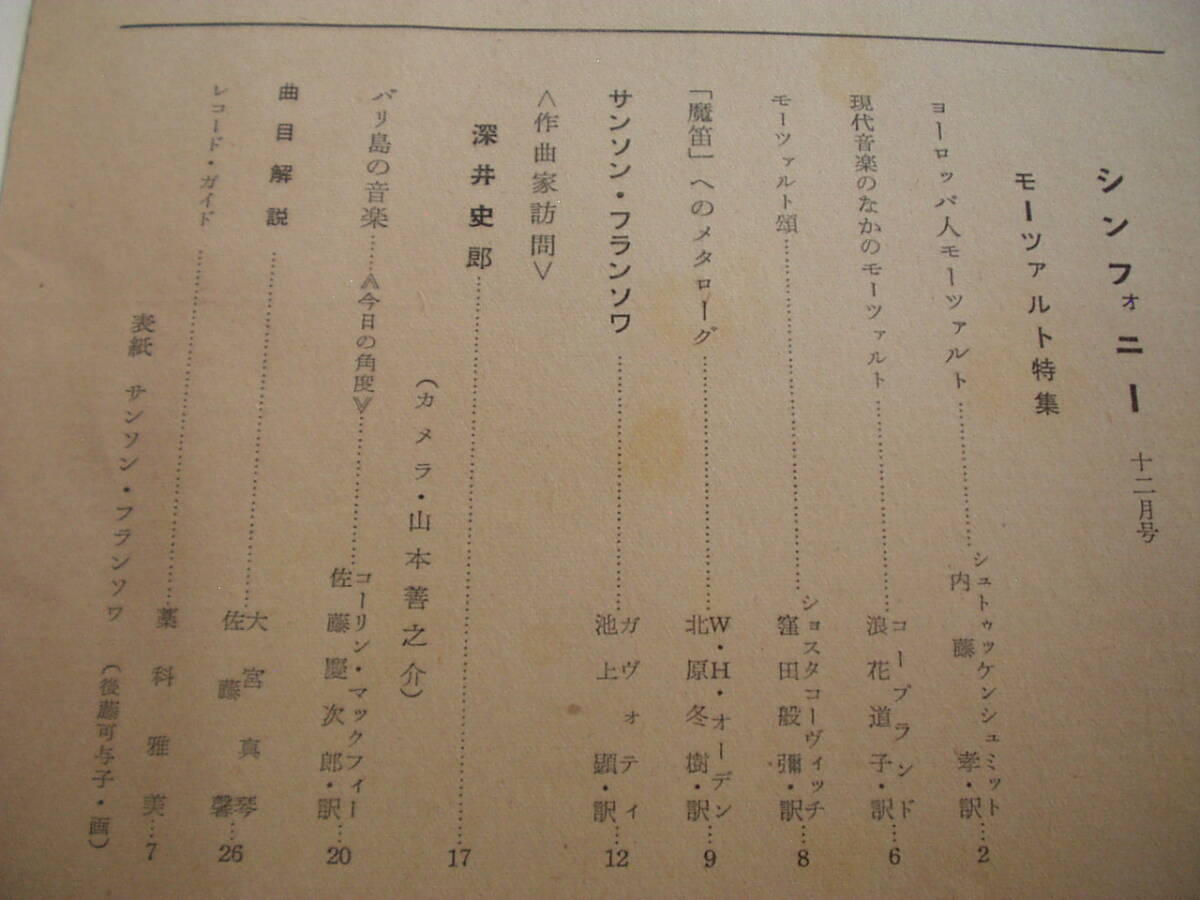 シンフォニー 十二月号
モーツァルト特集
ヨーロッパ人モーツァルト……シュトゥッケンシュミット 内藤孝・訳…2
現代音楽のなかのモーツァルト……コープランド 浪花道子・訳…6
モーツァルト頌……ショスタコーヴィッチ 窪田般彌・訳…8
「魔笛」へのメタローグ……W・H・オーデン 北原冬樹・訳…9
サンソン・フランソワ……ガヴォティ 池上顕・訳…12
<作曲家訪問>
深井史郎……17
(カメラ・山本善之介)
バリ島の音楽……≪今日の角度≫……コーリン・マックフィー 佐藤慶次郎・訳…20
曲目解説……大宮真琴 佐藤馨…26
レコード・ガイド……藁科雅美…7
表紙 サンソン・フランソワ (後藤可与子・画)